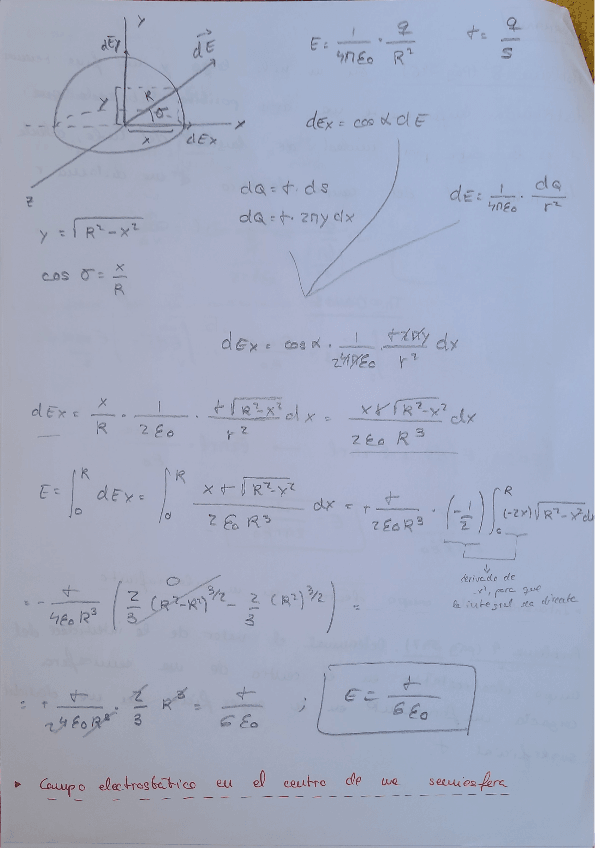 y
dEy
dE
E = 1/4πε0 · q/R²
t = q/s
y
R
σ
x
x
dEx
z
dEx = cos α dE
dQ = t · ds
dQ = t · 2πy dx
dE = 1/4πε0 · dQ/r²
y = √(R² - x²)
cos σ = x/R
dEx = cos α · 1/(24πε0) · t2πy/r² dx
dEx = x/R · 1/2ε0 · t√(R² - x²)/r² dx = x t √(R² - x²)/(2ε0 R³) dx
E = ∫₀ᴿ dEx = ∫₀ᴿ x t √(R² - x²)/(2ε0 R³) dx = + t/(2ε0 R³) · (-1/2) ∫₀ᴿ (-2x) √(R² - x²) dx
derivada de
x², para que
la integral sea directa
= - t/(4ε0 R³) (2/3 (R² - R²)^3/2 - 2/3 (R²)^3/2) =
0
= + t/(24ε0 R³) · 2/3 R³ = t/6ε0 ; E = t/6ε0
▸ Campo electrostático en el centro de una semiesfera